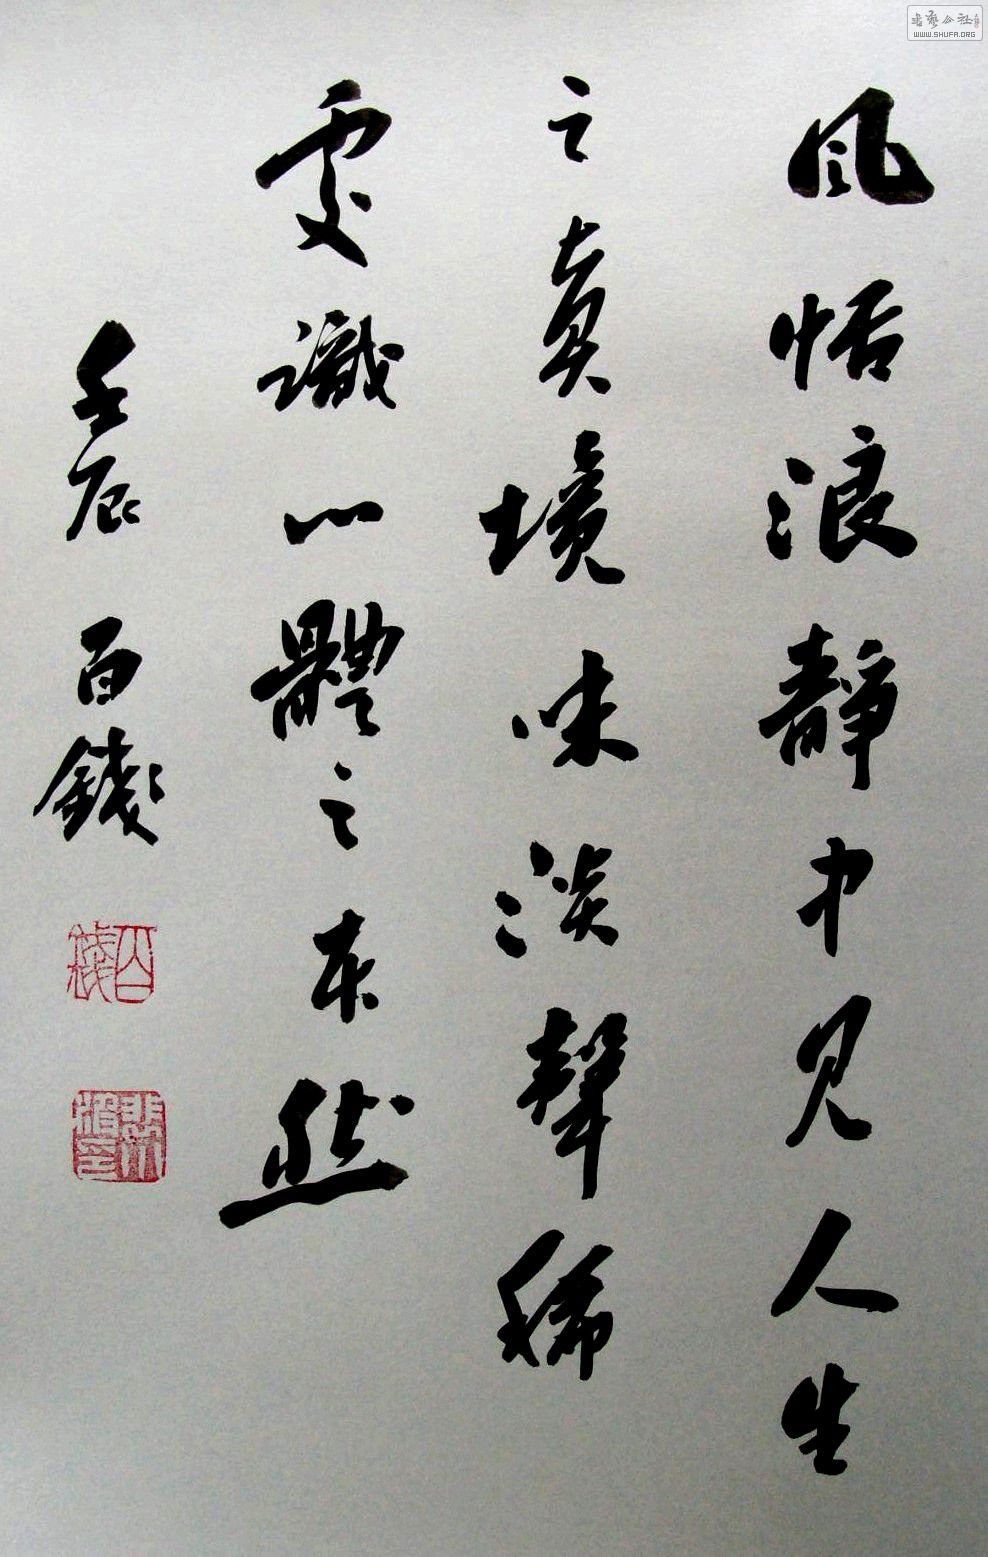 風恬浪靜中見人生
之真境味淡聲稀
處識心體之本然
壬辰 百錢
百錢
書藝公社
WWW.SHUFA.ORG